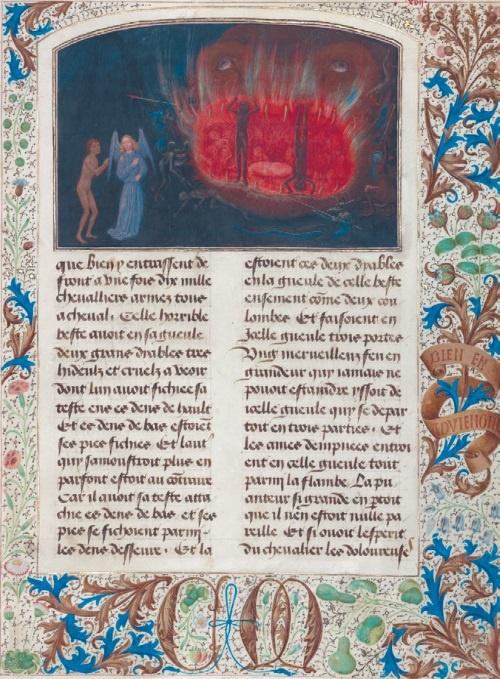 que bien y entraissent de
front a une fois dix mille
chevalliers armez tous
a cheval. Celle horrible
beste avoit en sa gueule
deux grans dyables tres
hideulx et cruelz a veoir
dont lun avoit fichee sa
teste ens es dens de hault
Et es dens de bas estoiet
ses pies fichies. Et laut
quy samonstroit plus en
parfont estoit au contraire
Car il avoit sa teste atta
chie es dens de bas et ses
pies se fichoient parmi
les dens desseure. Et la
estoient ces deux dyables
en la gueule de celle beste
ensement come deux cou
lombes Et faisoient en
Icelle gueule trois portes
Ung merveilleux feu en
grandeur quy iamais ne
pouoit estaindre yssoit de
icelle gueule quy se depar
toit en trois parties. Et
les ames dempnees entroi
ent en celle gueule tout
parmi la flambe. La pu
anteur si grande en ptoit
que il nen estoit nulle pa
reille Et si ouoit lesperit
du chevalier les doloureuses
BIEN EN
CM